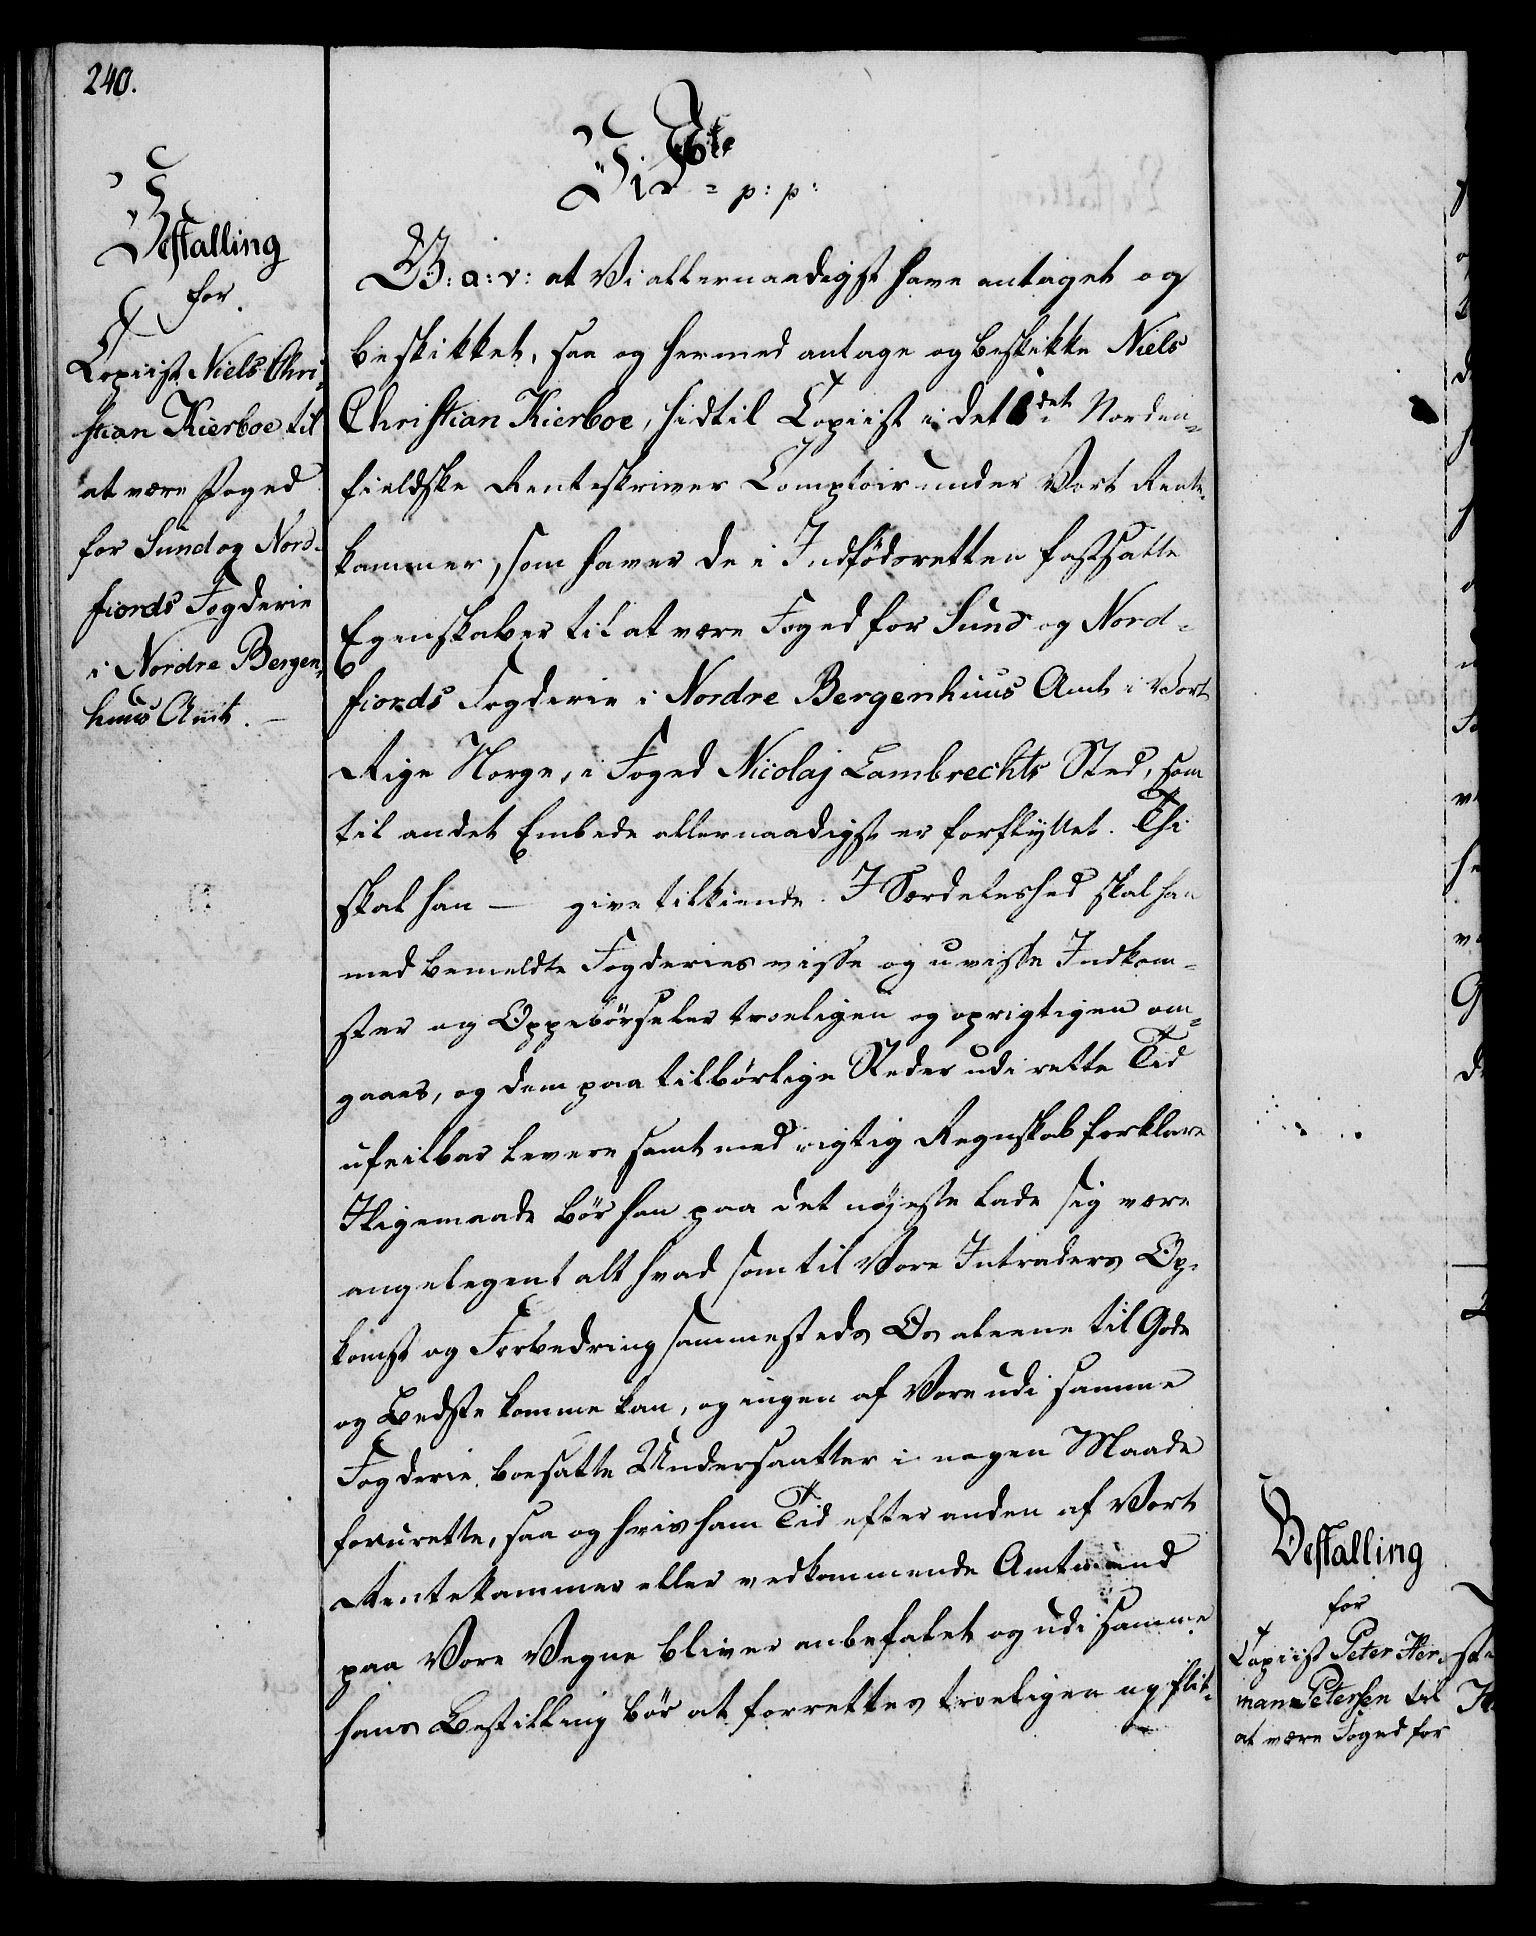 240.
Bestalling
for
Copiist Niels Chri-
stian Kierboe til
at være Foged
for Sund og Nord-
fiords Fogderie
i Nordre Bergen-
huus Amt. -
p: p:
G: a: v: at Vi allernaadigst have antaget og
beskikket, saa og hermed antage og beskikke Niels
Christian Kierboe, hidtil Copiist i det Norden-
fieldske Renteskriver Comptoir under Vort Rente-
kammer, som haver de i Indfødsretten fastsatte
Egenskaber til at være Foged for Sund og Nord-
fiords Fogderie i Nordre Bergenhuus Amt i Vort
Rige Norge, i Foged Nicolaj Lambrechts Sted, som
til andet Embede allernaadigst er forflyttet. Thi
skal han - give tilkiende. I Særdeleshed skal han
med bemeldte Fogderies visse og uvisse Indkom-
ster og Oppebørseler troeligen og oprigtigen om-
gaaes, og dem paa tilbørlige Steder udi rette Tid
ufeilbar levere samt med rigtig Regnskab forklare
Iligemaade bør han paa det nøjeste lade sig være
angelegent alt hvad som til Vore Intraders Op-
komst og Forbedring sammesteds Os alene til Gode
og Bedste komme kan, og ingen af Vore udi samme
Fogderie boesatte Undersaatter i nogen Maade
forurette, saa og hvis ham Tid efter anden af Vort
Rentekammer eller vedkommende Amtmand
paa Vore Vegne bliver anbefalet og udi samme
hans Bestilling bør at forrettes troeligen og flit-
Bestalling
for
Copiist Peter Her-
man Petersen til
at være Foged for